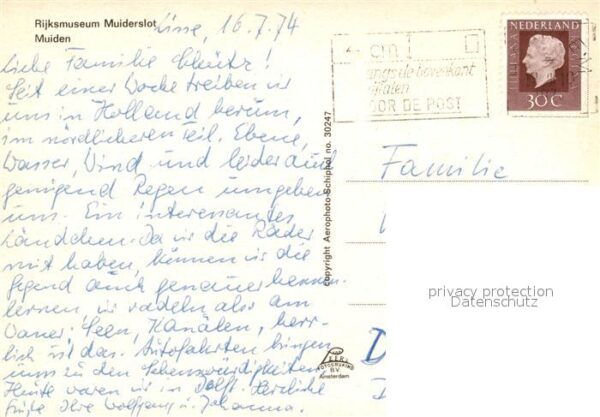 Rijksmuseum Muiderslot
Muiden
Lisse, 16.7.74
Liebe Familie
Seit einer Woche treiben wir
uns in Holland herum,
im nördlicheren Teil. Ebene,
Wasser, Wind und leider auch
genügend Regen umgeben
uns. Ein interessantes
Ländchen. Da wir die Räder
mit haben, können wir die
Gegend auch genauer kennen-
lernen, wir radeln also am
Seen, Kanälen, herr-
lich ist das. Autofahrten bringen
uns zu den Sehenswürdigkeiten.
Heute waren wir in Delft. Herzliche
Grüße Ihre Wolfgang u. Johanna.
copyright Aerophoto-Schiphol no. 30247
de bovenkant
OOR DE POST
NEDERLAND
JULIANA
30 C
Familie
privacy protection
Datenschutz
B.V.
Amsterdam